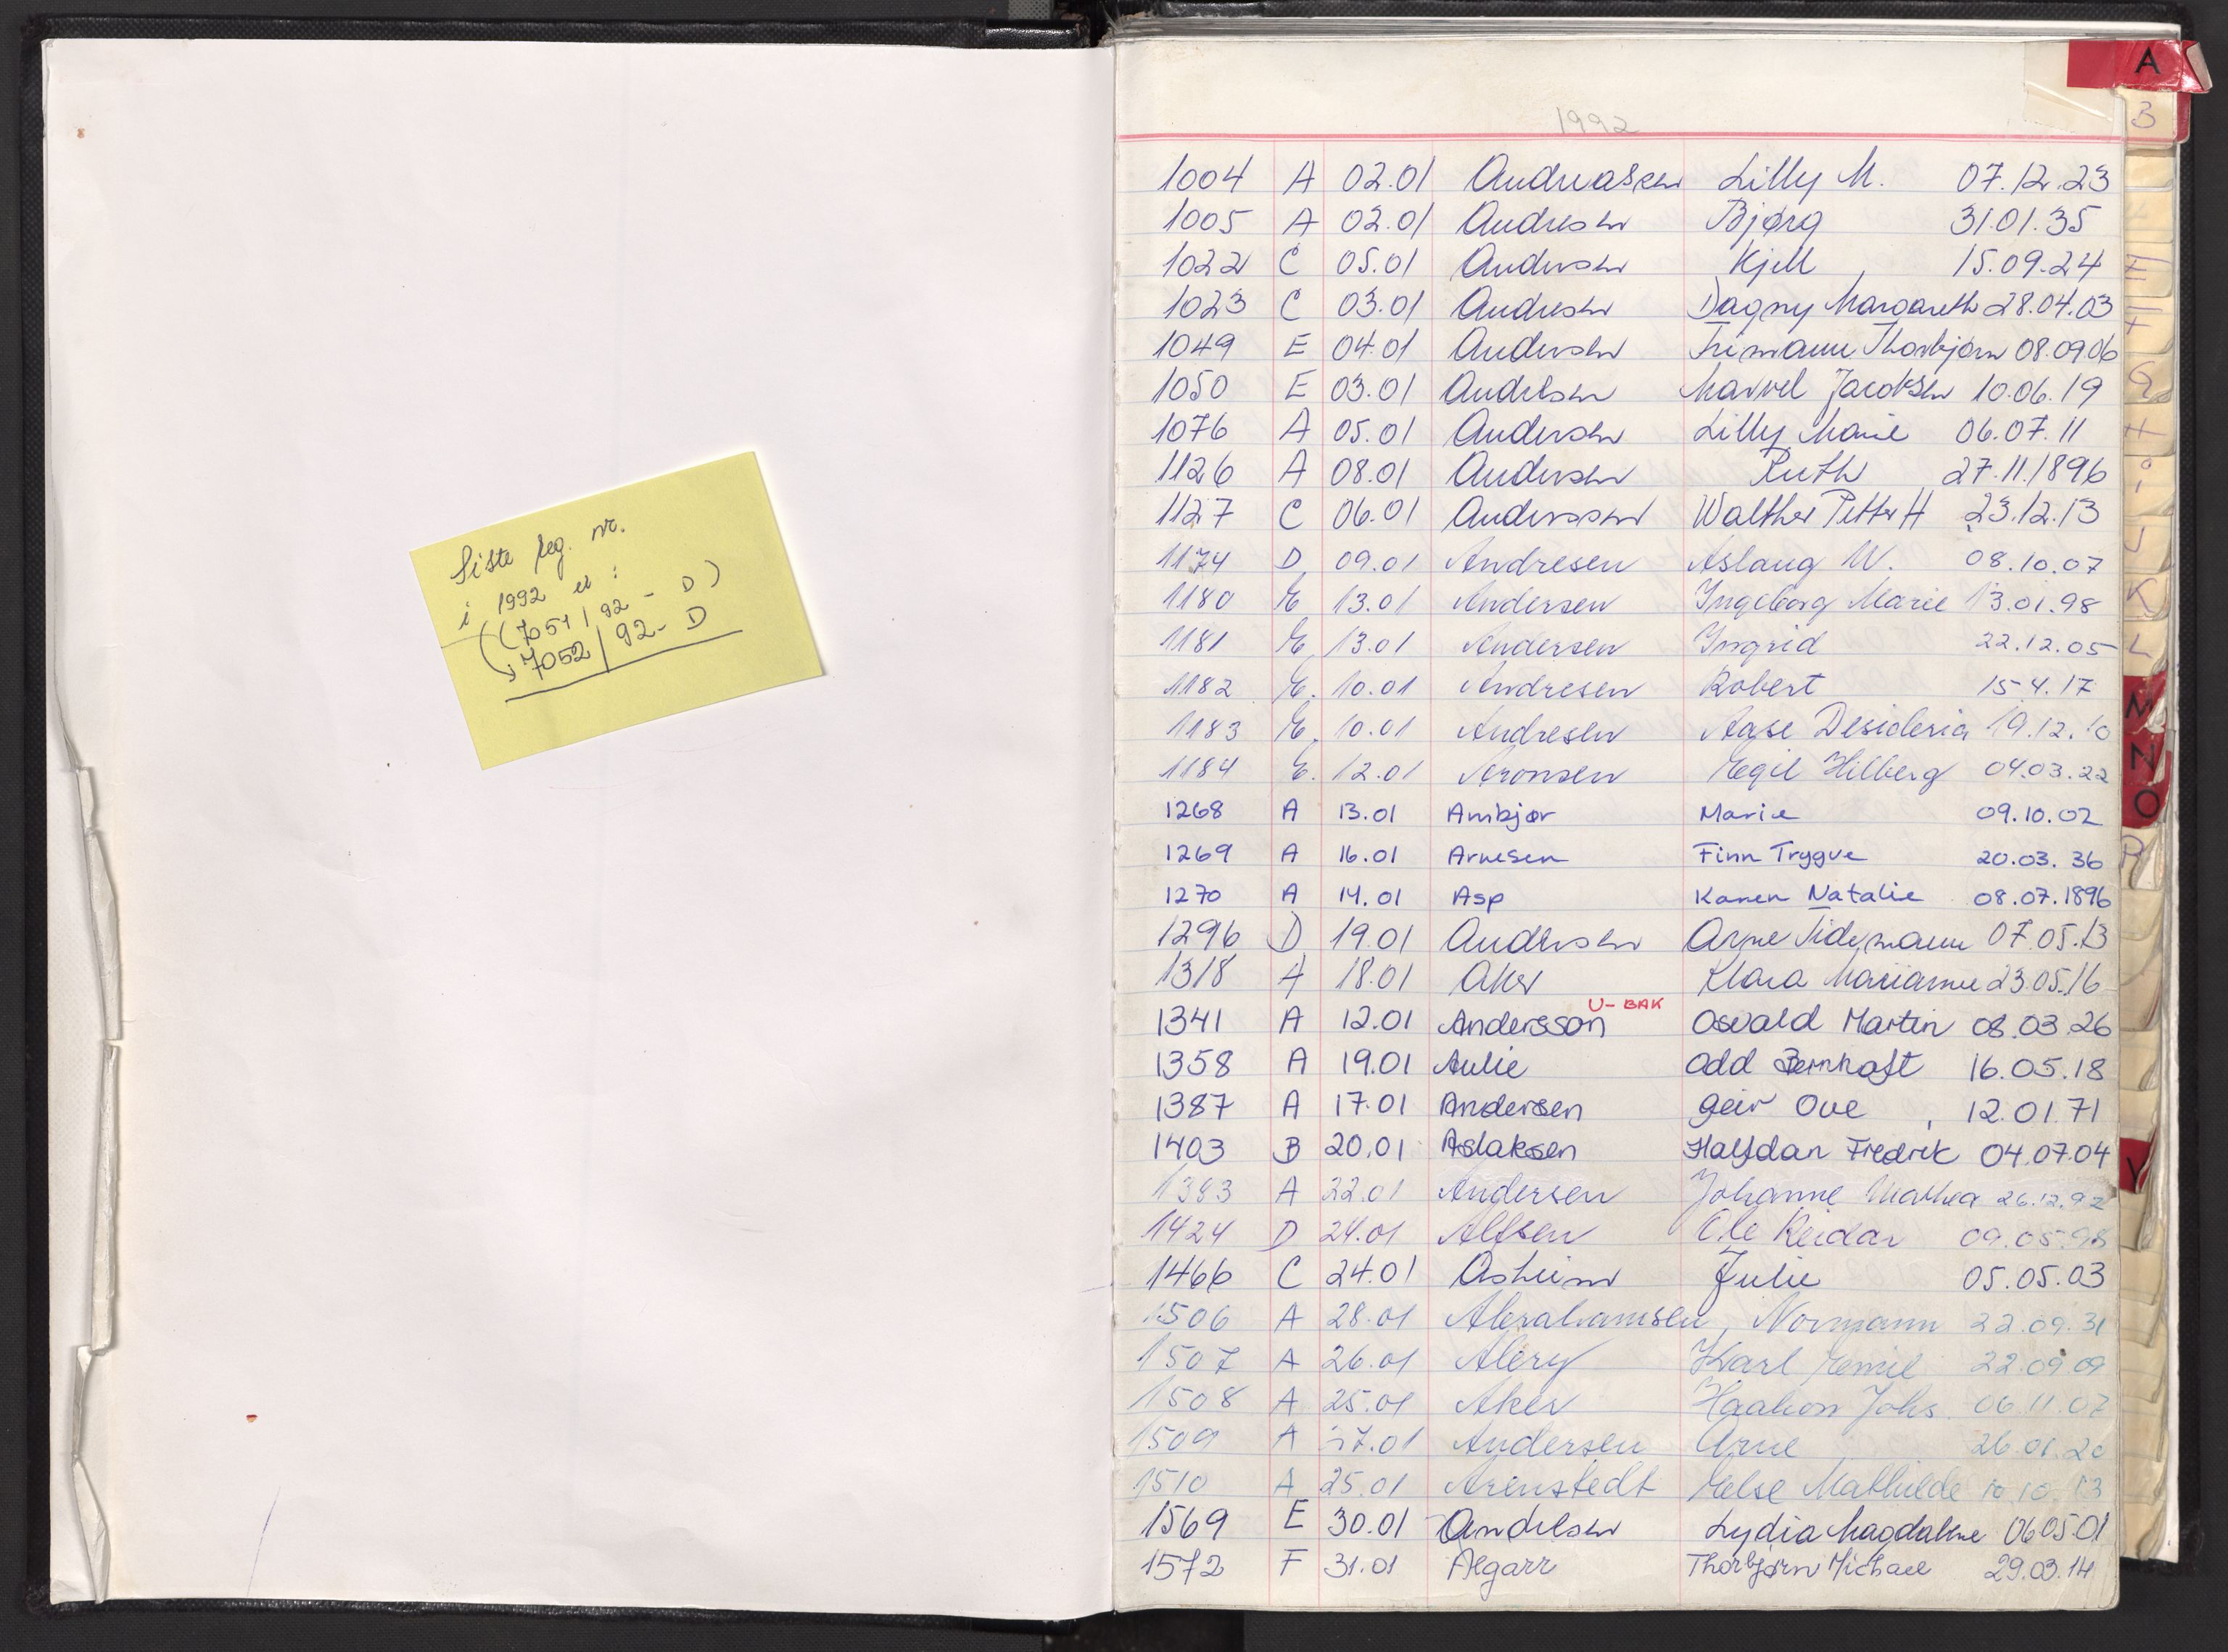 Siste reg. nr.
i 1992 er :
((7051/92 - D)
7052/92 - D
1992
1004 A 02.01 Andreassen Lilly M. 07.12.23
1005 A 02.01 Andresen Bjørg 31.01.35
1022 C 05.01 Andersen Kjell 15.09.24
1023 C 03.01 Andresen Dagny Margareth 28.04.03
1049 E 04.01 Andersen Thorbjørn 08.09.06
1050 E 03.01 Andresen Jacobsen 10.06.19
1076 A 05.01 Andersen Lilly Marie 06.07.11
1126 A 08.01 Andersen Ruth 27.11.1896
1127 C 06.01 Anderssen Walther Petter H 23.12.13
1174 D 09.01 Andresen Aslaug W. 08.10.07
1180 E 13.01 Andersen Ingeborg Marie 13.01.98
1181 E 13.01 Andersen Ingrid 22.12.05
1182 E. 10.01 Andresen Robert 15.4.17
1183 E. 10.01 Andresen Aase Desideria 19.12.10
1184 E. 12.01 Aronsen Egil Hilberg 04.03.22
1268 A 13.01 Arnbjør Marie 09.10.02
1269 A 16.01 Arnesen Finn Trygve 20.03.36
1270 A 14.01 Asp Karen Natalie 08.07.1896
1296 D 19.01 Andersen Arne Tidemann 07.05.13
1318 A 18.01 Aker Klara Marianne 23.05.16
U-BAK
1341 A 12.01 Andersson Osvald Martin 08.03.26
1358 A 19.01 Aulie Odd Bernhoft 16.05.18
1387 A 17.01 Andersen Geir Ove , 12.01.71
1403 B 20.01 Aslaksen Halfdan Fredrik 04.07.04
1383 A 22.01 Andersen Johanne Mathea 26.12.92
1424 D 24.01 Alfsen Ole Reidar 09.05.98
1466 C 24.01 Asheim Julie 05.05.03
1506 A 28.01 Abrahamsen, Normann 22.09.31
1507 A 26.01 Alery Karl Emil 22.09.09
1508 A 25.01 Aker Haakon Johs. 06.11.07
1509 A 27.01 Andersen Arne 26.01.20
1510 A 25.01 Arenstedt Else Mathilde 10.10.13
1569 E 30.01 Andresen Lydia Magdalene 06.05.01
1572 F 31.01 Algarr Thorbjørn Michael 29.03.14
A
B
F
G
H
I
J
K
L
M
N
O
P
V